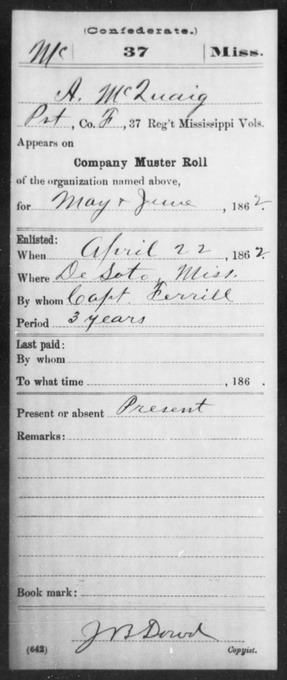 (Confederate.)
Mc 37 Miss.
A. McQuaig
Pvt, Co. F, 37 Reg't Mississippi Vols.
Appears on
Company Muster Roll
of the organization named above,
for May & June, 1862.
Enlisted:
When April 22, 1862
Where De Soto, Miss.
By whom Capt. Ferrill
Period 3 years
Last paid:
By whom
To what time , 186 .
Present or absent Present
Remarks:
Book mark:
J B Dowd
(642) Copyist.